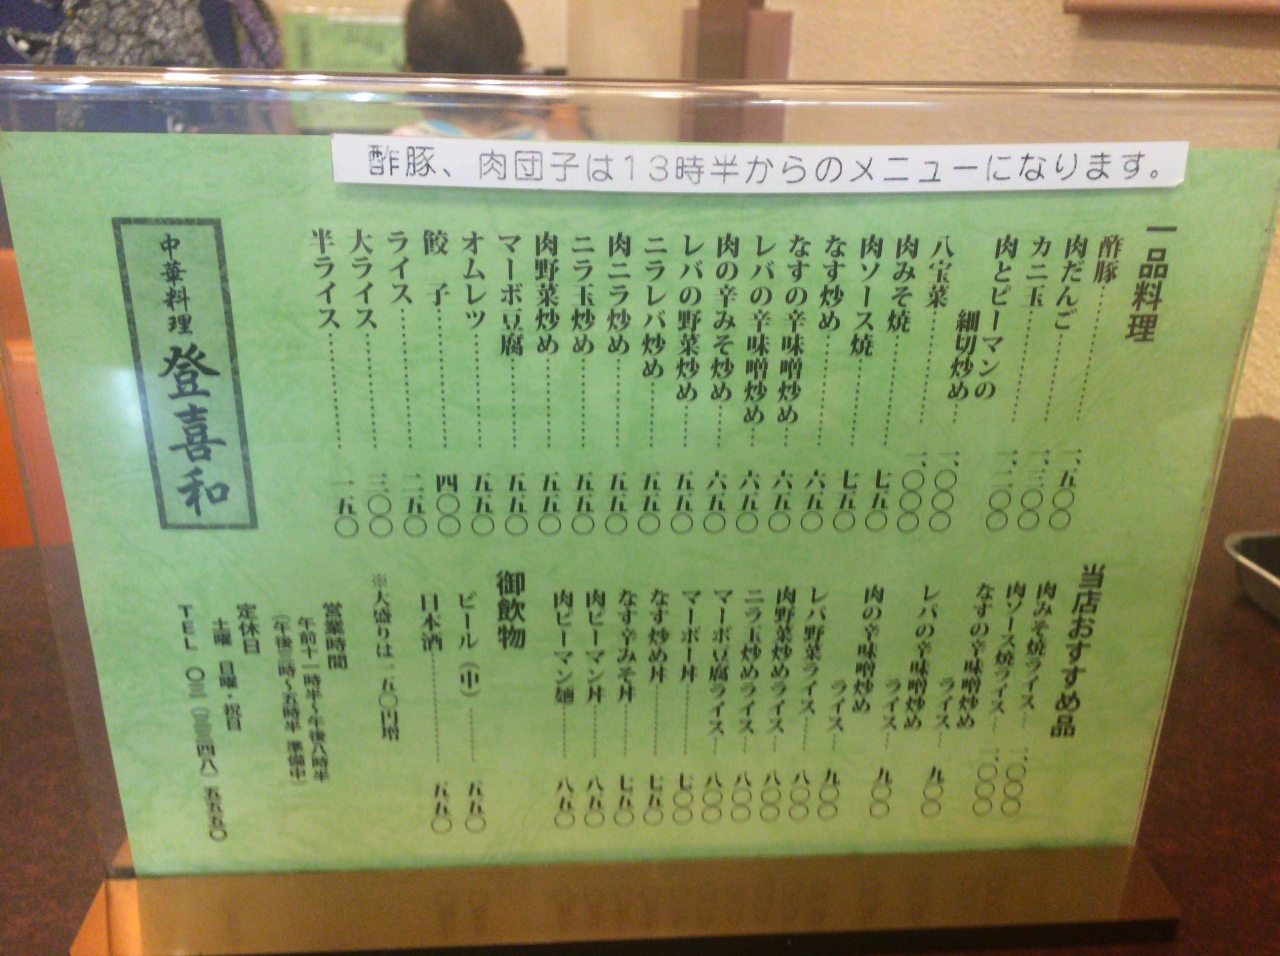 酢豚、肉団子は13時半からのメニューになります。
一品料理
酢豚……一、五〇〇
肉だんご……一、三〇〇
カニ玉……一、二〇〇
肉とピーマンの
細切炒め…一、〇〇〇
八宝菜……一、〇〇〇
肉みそ焼……七五〇
肉ソース焼……七五〇
なす炒め……六五〇
なすの辛味噌炒め…六五〇
レバの辛味噌炒め…六五〇
肉の辛みそ炒め……六五〇
レバの野菜炒め……五五〇
ニラレバ炒め……五五〇
肉ニラ炒め……五五〇
ニラ玉炒め……五五〇
肉野菜炒め……五五〇
マーボ豆腐……五五〇
オムレツ……五五〇
餃 子……四〇〇
ライス……二五〇
大ライス……三〇〇
半ライス……一五〇
中華料理 登喜和
当店おすすめ品
肉みそ焼ライス…一、〇〇〇
肉ソース焼ライス…一、〇〇〇
なすの辛味噌炒め
ライス…九〇〇
レバの辛味噌炒め
ライス…九〇〇
肉の辛味噌炒め
ライス…九〇〇
レバ野菜ライス…八〇〇
肉野菜炒めライス…八〇〇
ニラ玉炒めライス…八〇〇
マーボ豆腐ライス…八〇〇
マーボー丼……七〇〇
なす炒め丼……七五〇
なす辛みそ丼……七五〇
肉ピーマン丼……八五〇
肉ピーマン麺……八五〇
御飲物
ビール(中)……五五〇
日本酒……五五〇
※大盛りは一五〇円増
営業時間
午前十一時半〜午後八時半
(午後三時〜五時半 準備中)
定休日
土曜 日曜・祝日
TEL 〇三(三三四八)五五五〇